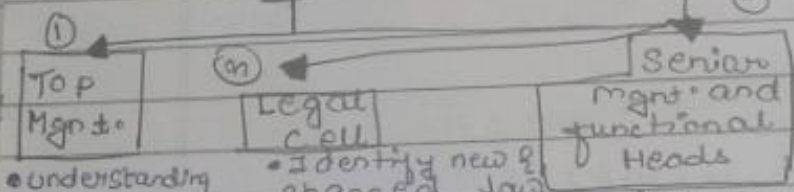 ①
Top
Mgnt.
②
Legal
cell
Senior
mgnt. and
functional
Heads
• understanding
• Identify new &
changed law